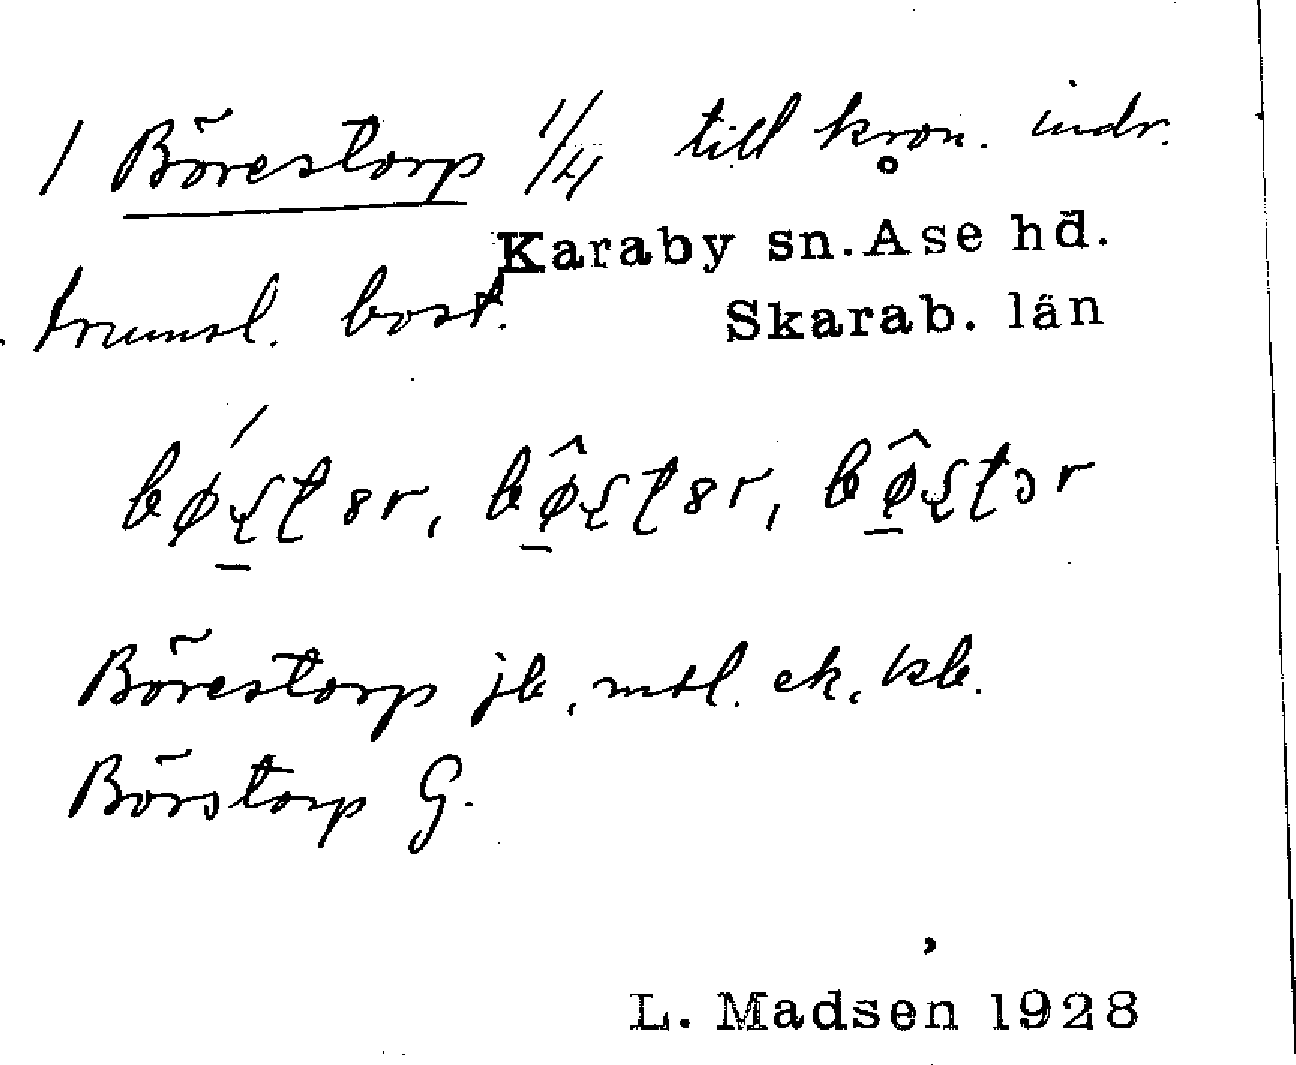 1 Börestorp 1/4 till kron. indr.
Karaby sn. Åse hd.
trumsl. bost.
Skarab. län
Börestorp jb, mtl. ek, kb.
Börstorp G.
L. Madsen 1928